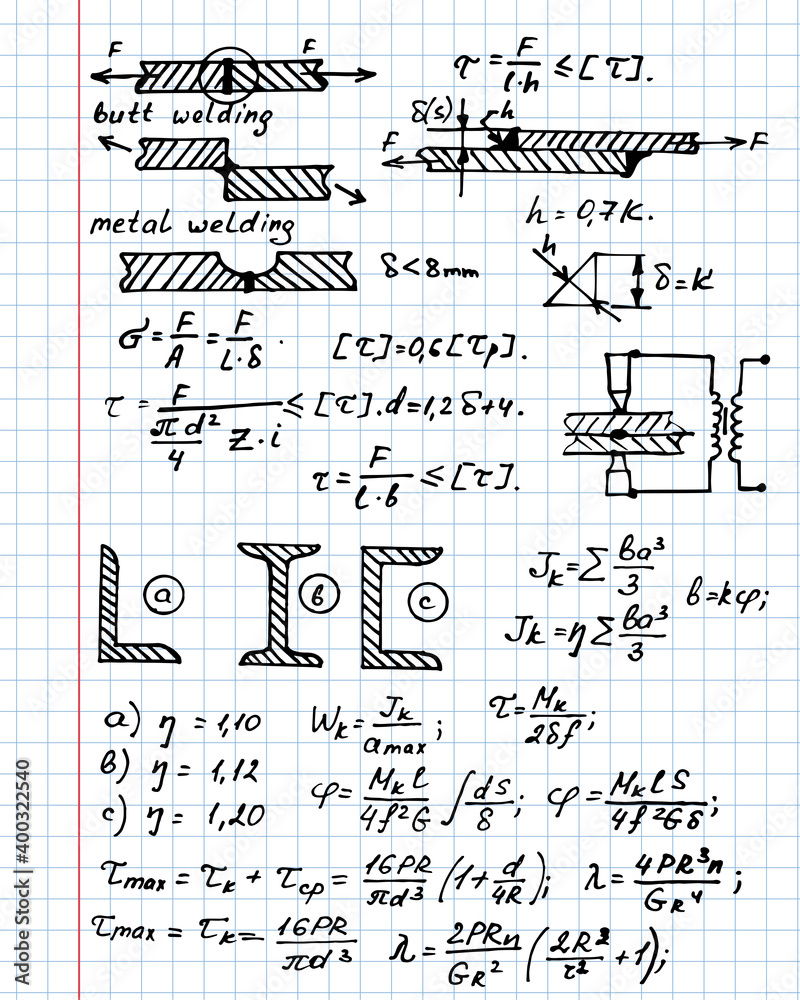 F F
τ = F/(l·h) ≤ [τ].
butt welding
δ(s) h
F F
metal welding
h = 0,7K.
δ < 8mm
h δ = K
σ = F/A = F/(L·δ) .
[τ] = 0,6[τp].
τ = F/((πd²/4) z·i) ≤ [τ]. d = 1,2δ+4.
τ = F/(l·b) ≤ [τ].
a в c
Jк = Σ вa³/3
в = kφ;
Jк = η Σ вa³/3
a) η = 1,10
Wк = Jк/amax ;
τ = Mк/(2δf) ;
в) η = 1,12
φ = Mк l/(4f²G) ∫ ds/δ ; φ = Mк l S/(4f²Gδ) ;
c) η = 1,20
τmax = τк + τcp = 16PR/(πd³) (1 + d/(4R)); λ = 4PR³n/(GR⁴) ;
τmax = τк = 16PR/(πd³) λ = 2PRn/(GR²) (2R²/τ² + 1);
Adobe Stock | #400322540